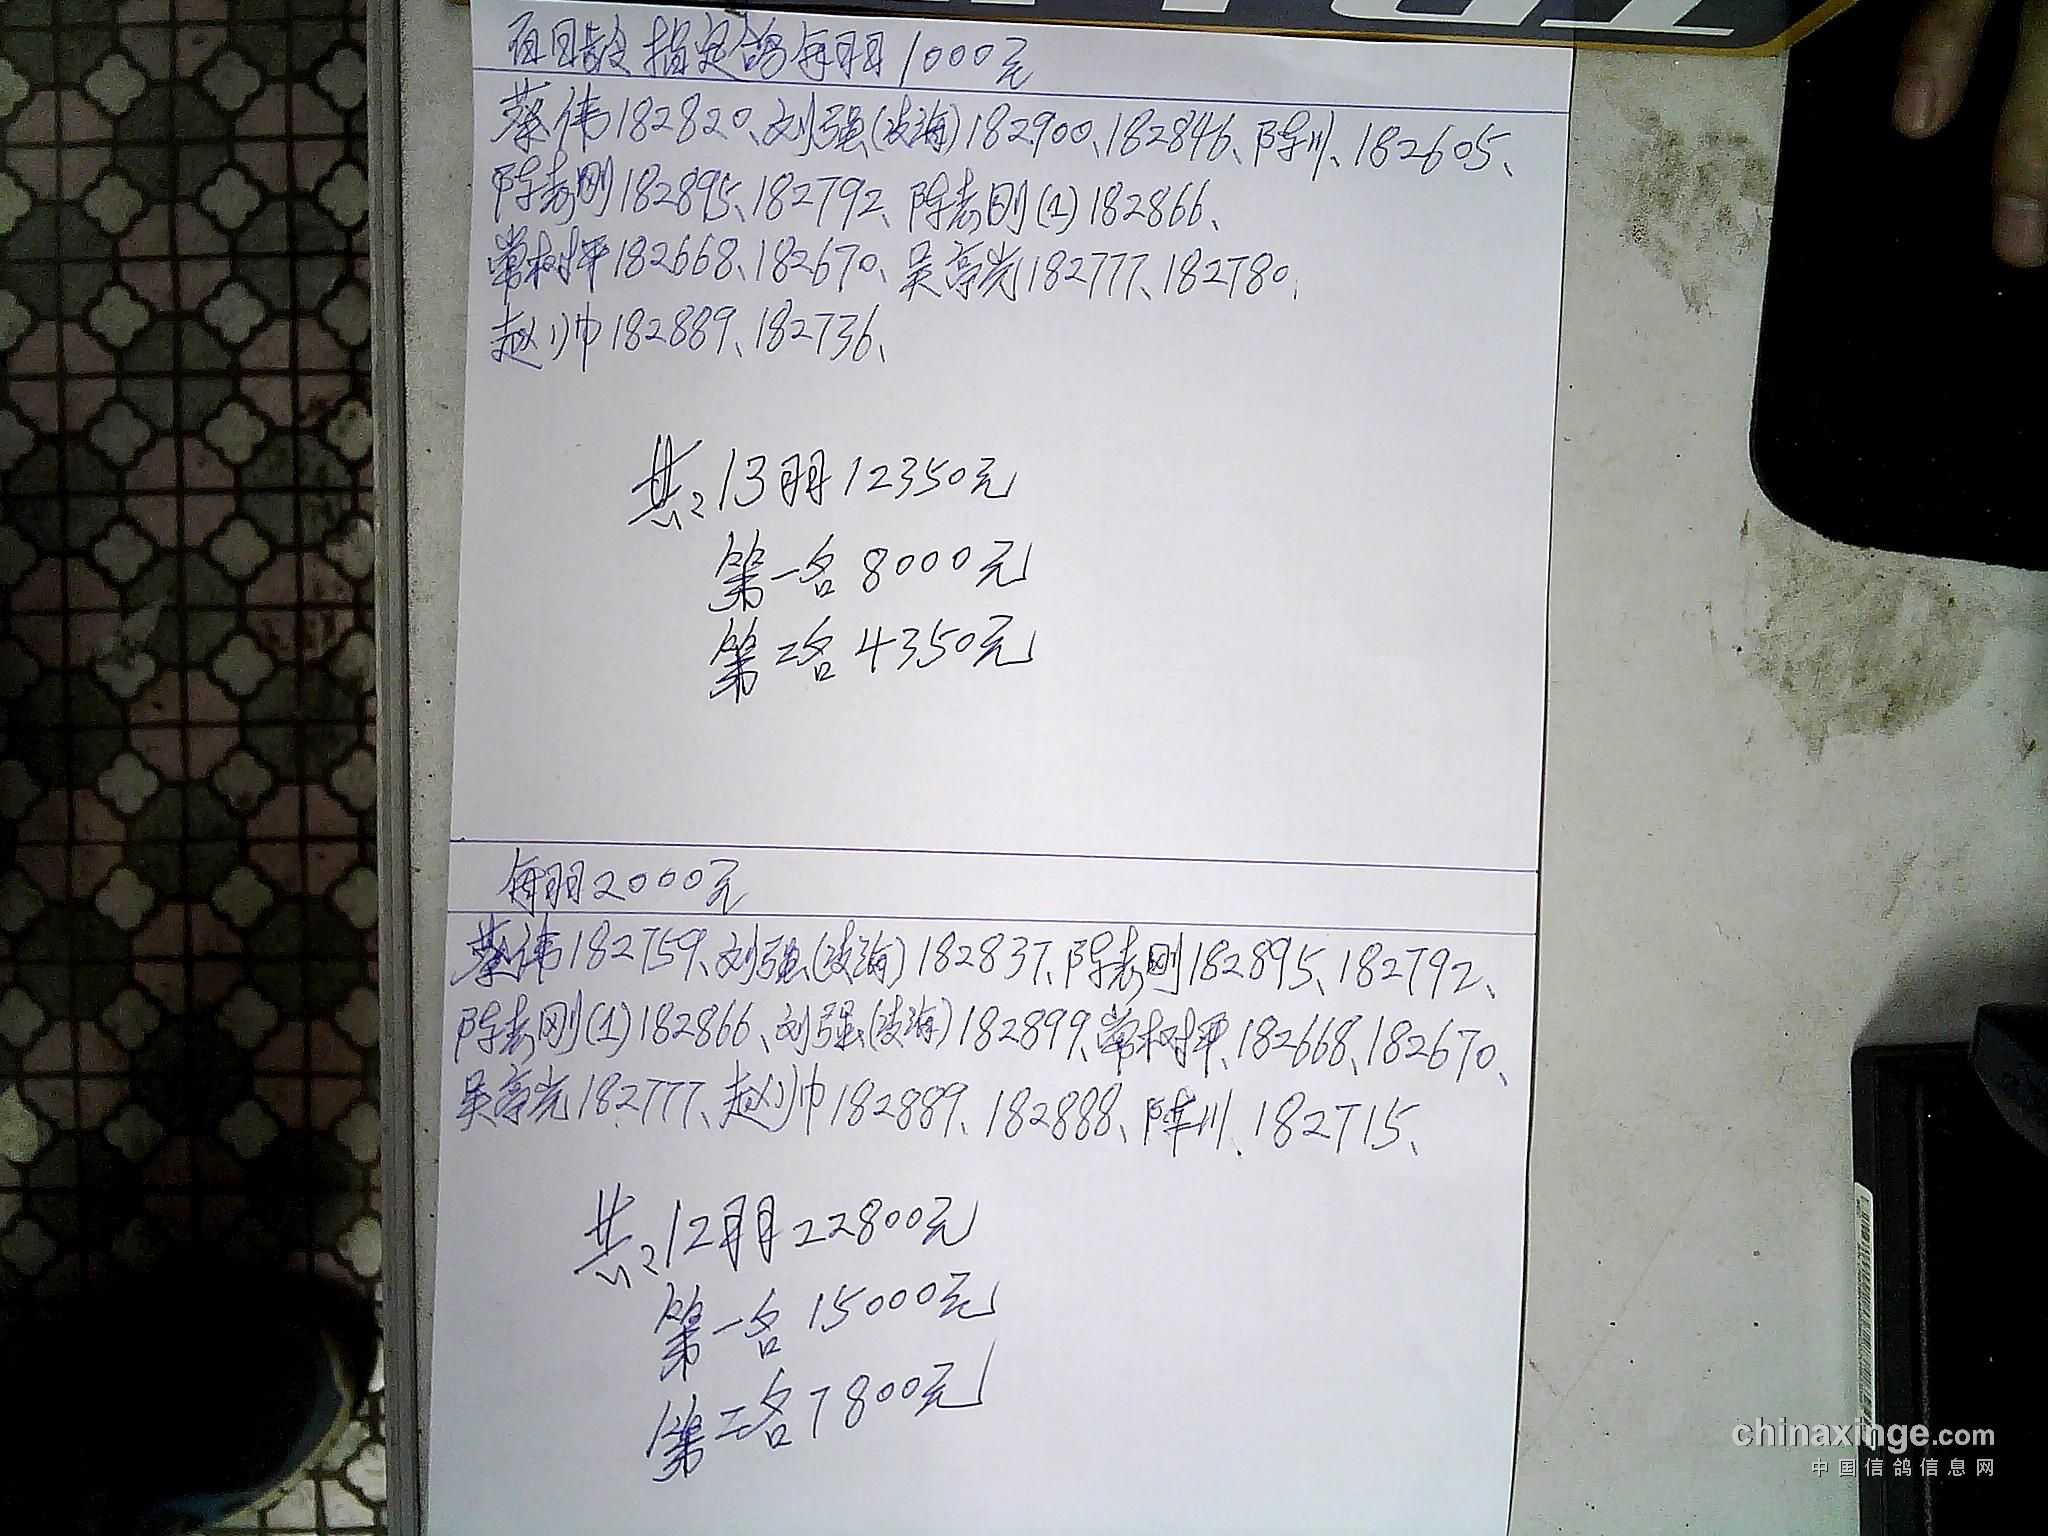 百日龄指定鸽每羽1000元
蔡伟182820、刘强(凌海)182900、182846、陈川、182605、
陈志刚182895、182792、陈志刚(1)182866、
常树坪182668、182670、吴高岩182777、182780、
赵小巾182889、182736、
共：13羽12350元
第一名8000元
第二名4350元
每羽2000元
蔡伟182759、刘强(凌海)182837、陈志刚182895、182792、
陈志刚(1)182866、刘强(凌海)182899、常树坪、182668、182670、
吴182777、赵182889、182888、陈川、182715、
共：12羽22800元
第一名15000元
第二名7800元
chinaxinge.com
中国信鸽信息网